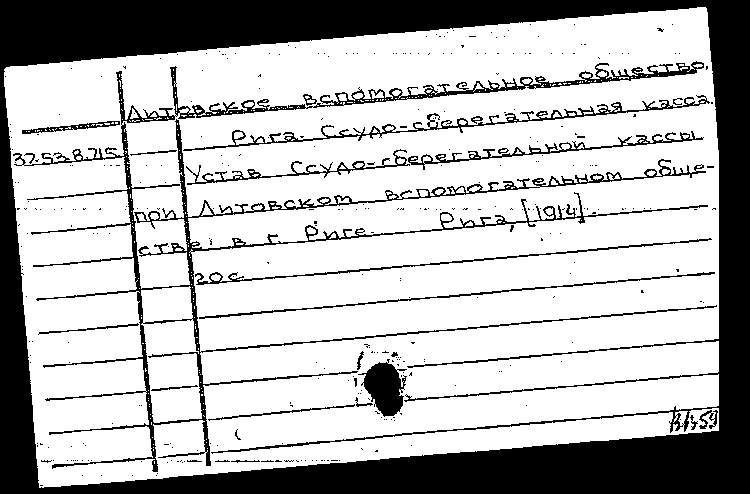 Литовское вспомогательное общество.
Рига. Ссудо-сберегательная касса.
37.53.8.715
Устав Ссудо-сберегательной кассы
при Литовском вспомогательном обще-
стве в г. Риге. Рига, [1914].
20 с.